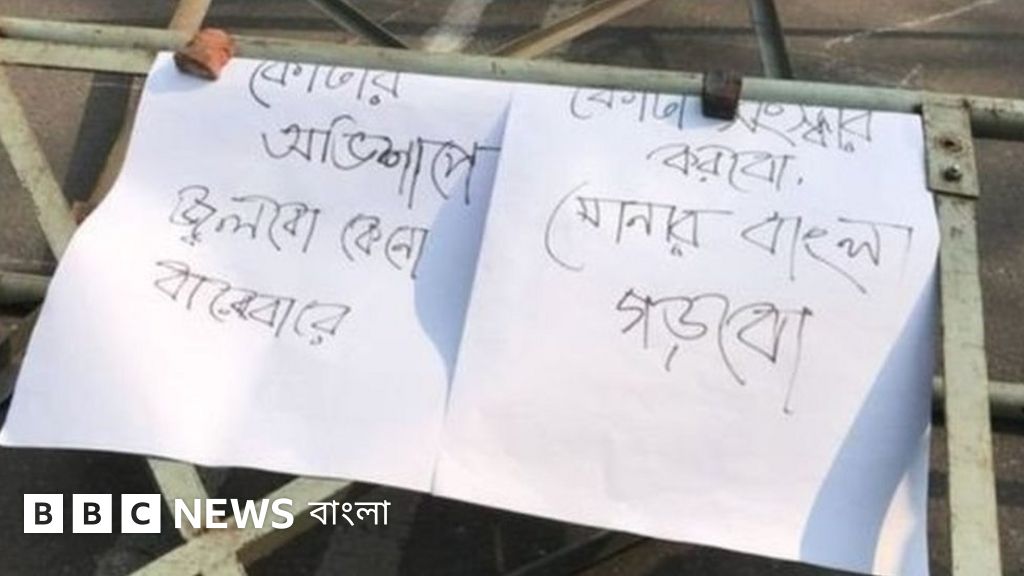 কোটার
অভিশাপে
জ্বলবো কেনো
বারেবারে
কোটা সংস্কার
করবো,
সোনার বাংলা
গড়বো
BBC NEWS বাংলা